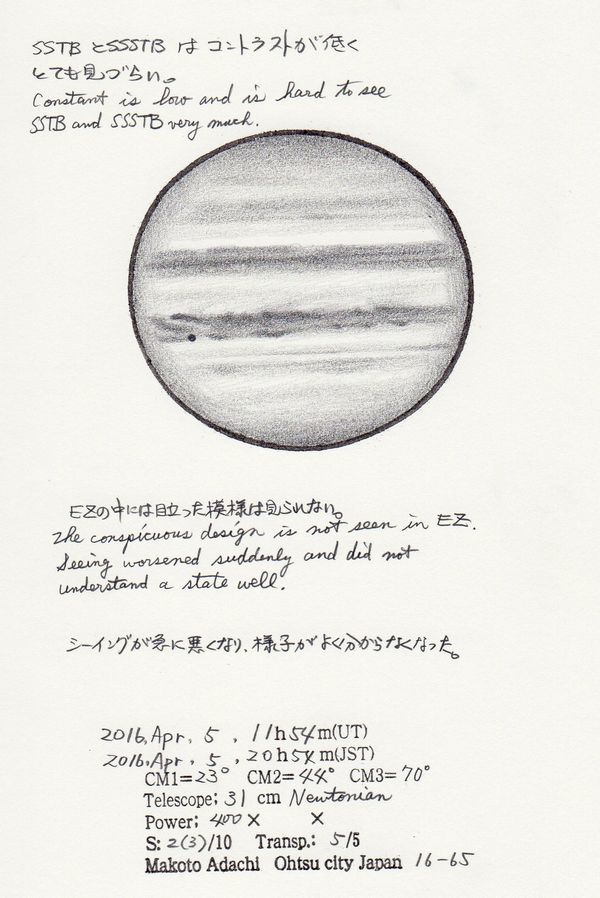 SSTBとSSSTBはコントラストが低く
とても見づらい。
Constant is low and is hard to see
SSTB and SSSTB very much.
EZの中には目立った模様は見られない。
The conspicuous design is not seen in EZ.
Seeing worsened suddenly and did not
understand a state well.
シーイングが急に悪くなり、様子がよく分からなくなった。
2016,Apr. 5 , 11h54m(UT)
2016,Apr. 5 , 20h54m(JST)
CM1=23° CM2=44° CM3=70°
Telescope; 31 cm Newtonian
Power; 400× ×
S: 2(3)/10 Transp.: 5/5
Makoto Adachi Ohtsu city Japan 16-65